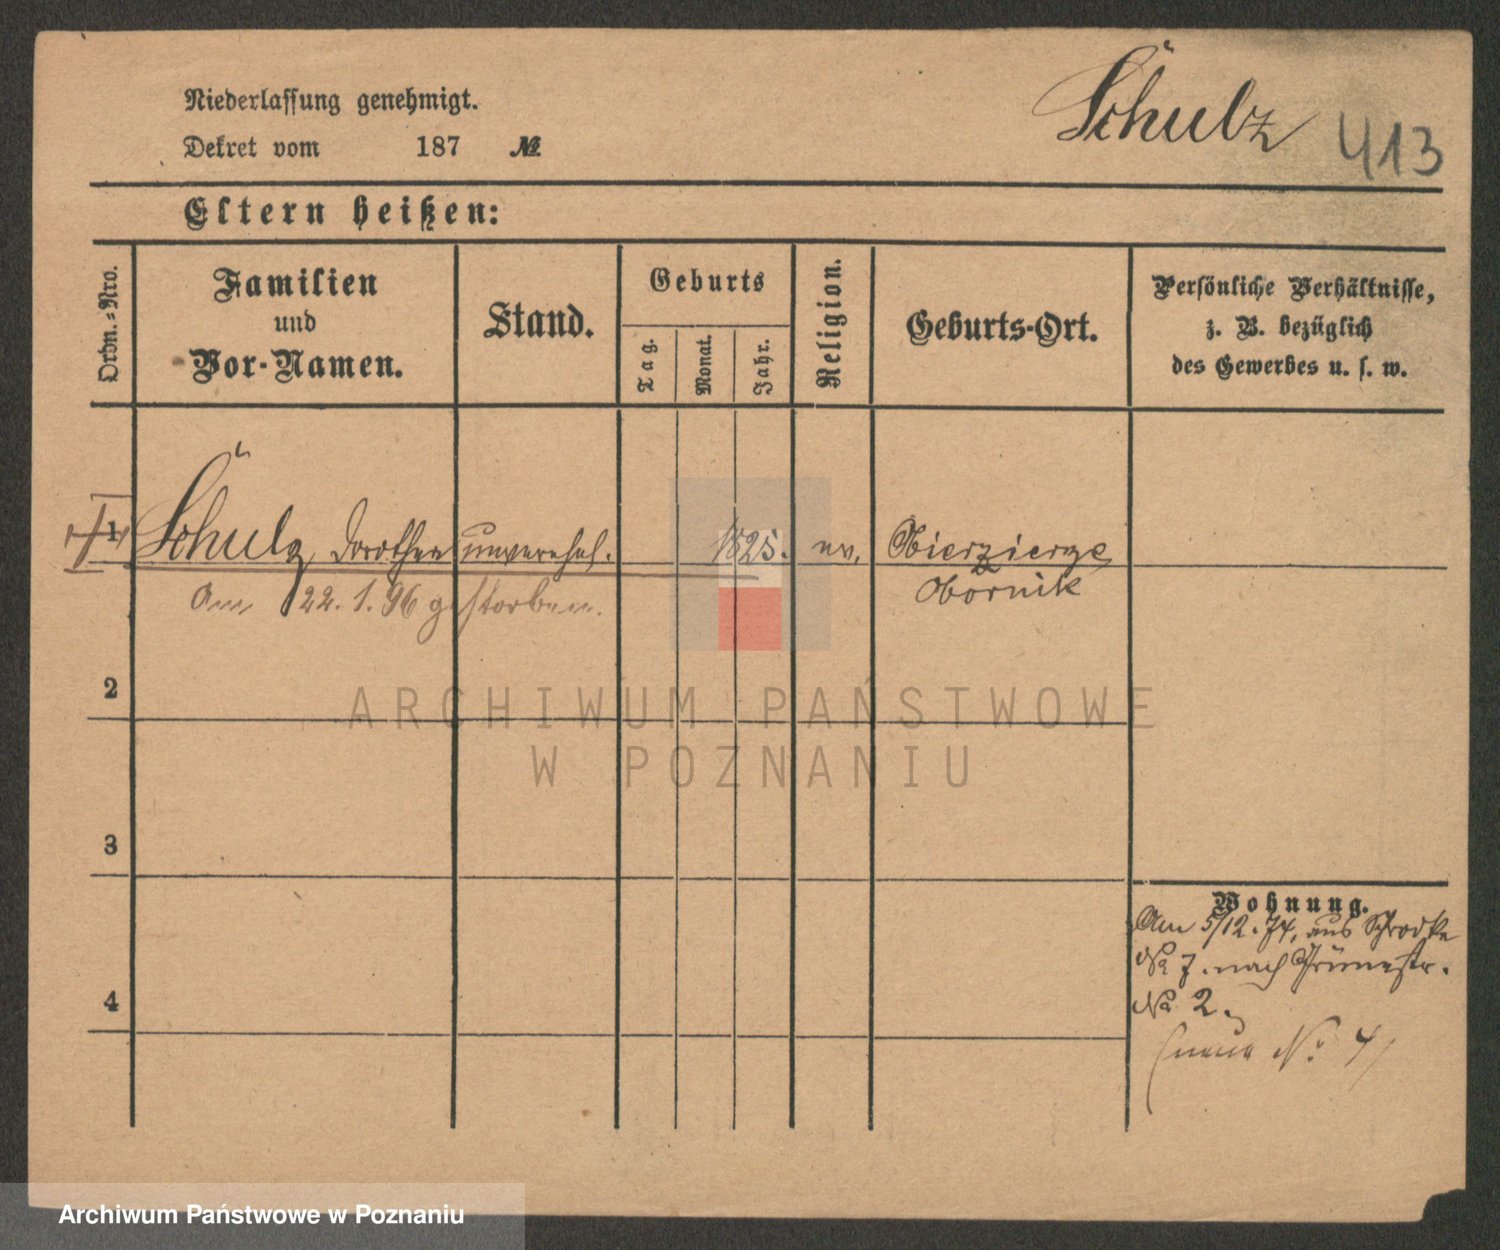 Niederlassung genehmigt.
Dekret vom 187 №
Schulz 413
Eltern heißen:
Ordn.-Nro.
Familien
und
Vor-Namen.
Stand.
Geburts
Tag.
Monat.
Jahr.
Religion.
Geburts-Ort.
Persönliche Verhältnisse,
z. B. bezüglich
des Gewerbes u. s. w.
1 Schulz, Dorothea unverehel. 1825. ev. Obierzierze
Obornik
Am 22.1.96 gestorben.
2
3
4
Wohnung.
Am 5/12.74, aus Schrodka
No 7. nach Grünestr.
No 2.
(neue No 4)
ARCHIWUM PAŃSTWOWE
W POZNANIU
Archiwum Państwowe w Poznaniu